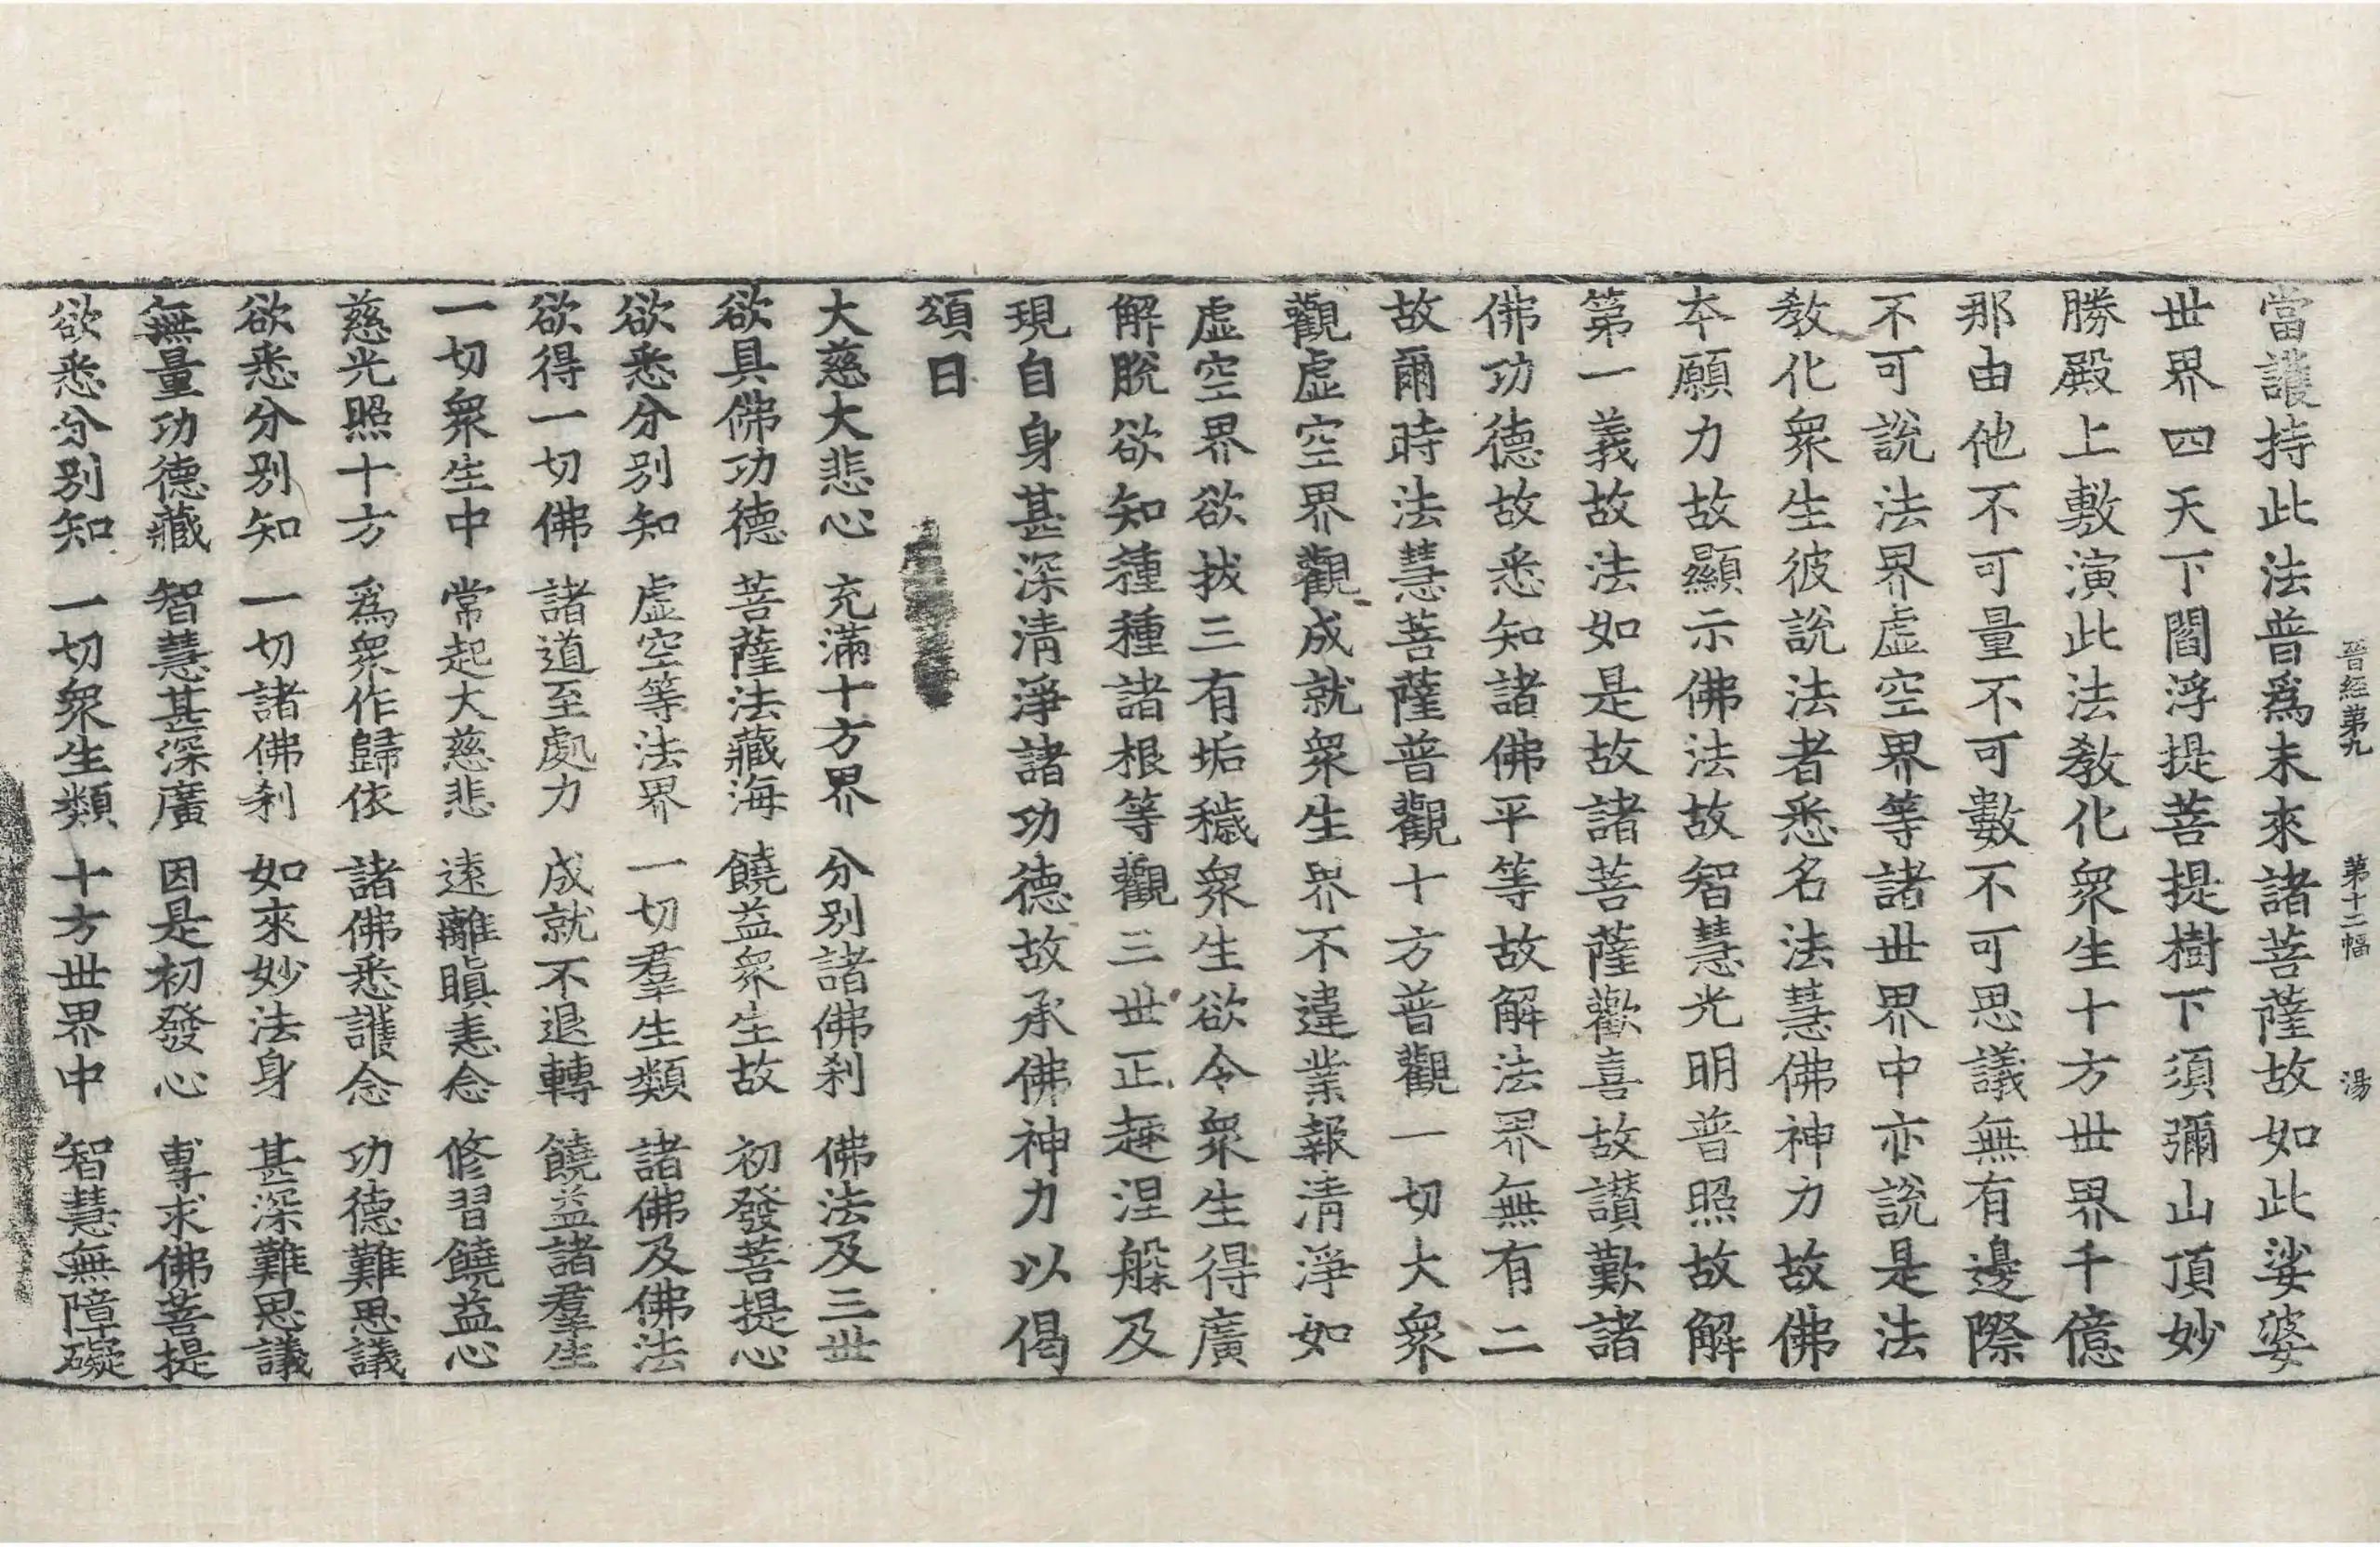 晉經第九 第十二幅 湯
當護持此法普爲未來諸菩薩故如此娑婆
世界四天下閻浮提菩提樹下須彌山頂妙
勝殿上敷演此法教化衆生十方世界千億
那由他不可量不可數不可思議無有邊際
不可說法界虛空界等諸世界中亦說是法
教化衆生彼說法者悉名法慧佛神力故佛
本願力故顯示佛法故智慧光明普照故解
第一義故法如是故諸菩薩歡喜故讃歎諸
佛功德故悉知諸佛平等故解法界無有二
故爾時法慧菩薩普觀十方普觀一切大衆
觀虛空界觀成就衆生界不違業報清淨如
虛空界欲拔三有垢穢衆生欲令衆生得廣
解脫欲知種種諸根等觀三世正趣涅槃及
現自身甚深清淨諸功德故承佛神力以偈
頌曰
大慈大悲心 充滿十方界 分別諸佛刹 佛法及三世
欲具佛功德 菩薩法藏海 饒益衆生故 初發菩提心
欲悉分別知 虛空等法界 一切羣生類 諸佛及佛法
欲得一切佛 諸道至處力 成就不退轉 饒益諸羣生
一切衆生中 常起大慈悲 遠離瞋恚念 修習饒益心
慈光照十方 爲衆作歸依 諸佛悉護念 功德難思議
欲悉分別知 一切諸佛刹 如來妙法身 甚深難思議
無量功德藏 智慧甚深廣 因是初發心 專求佛菩提
欲悉分別知 一切衆生類 十方世界中 智慧無障礙